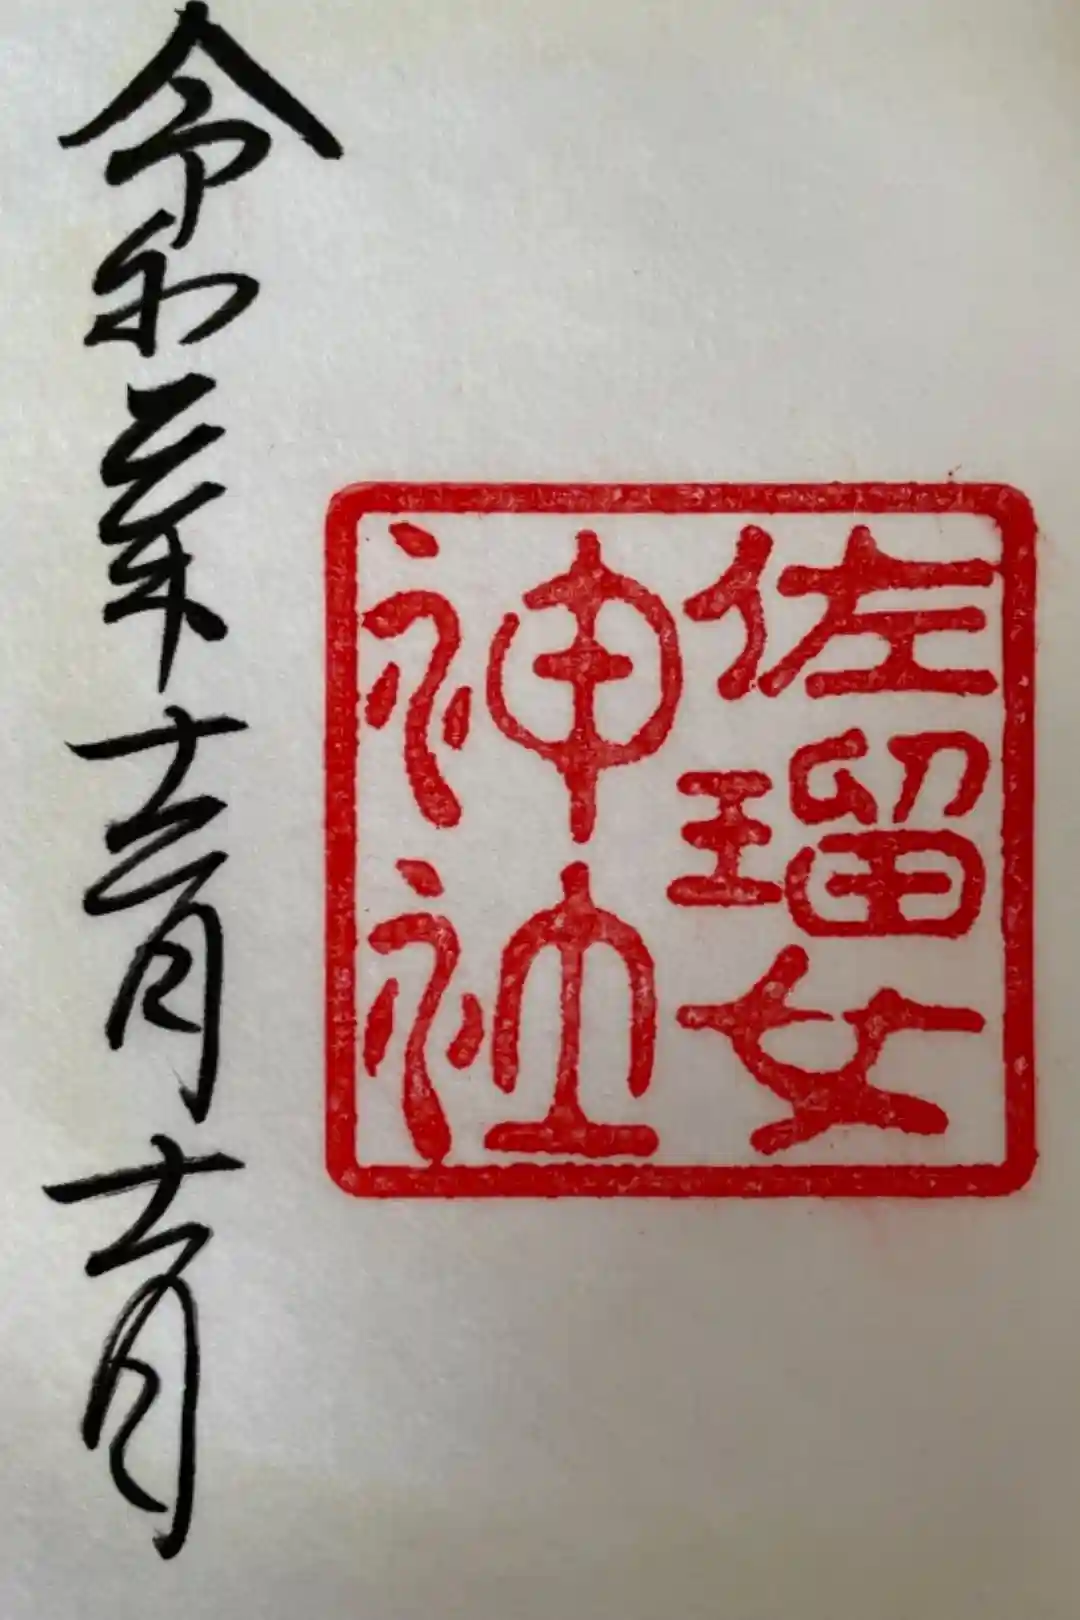 佐瑠女
神社
令和 年十二月十一日